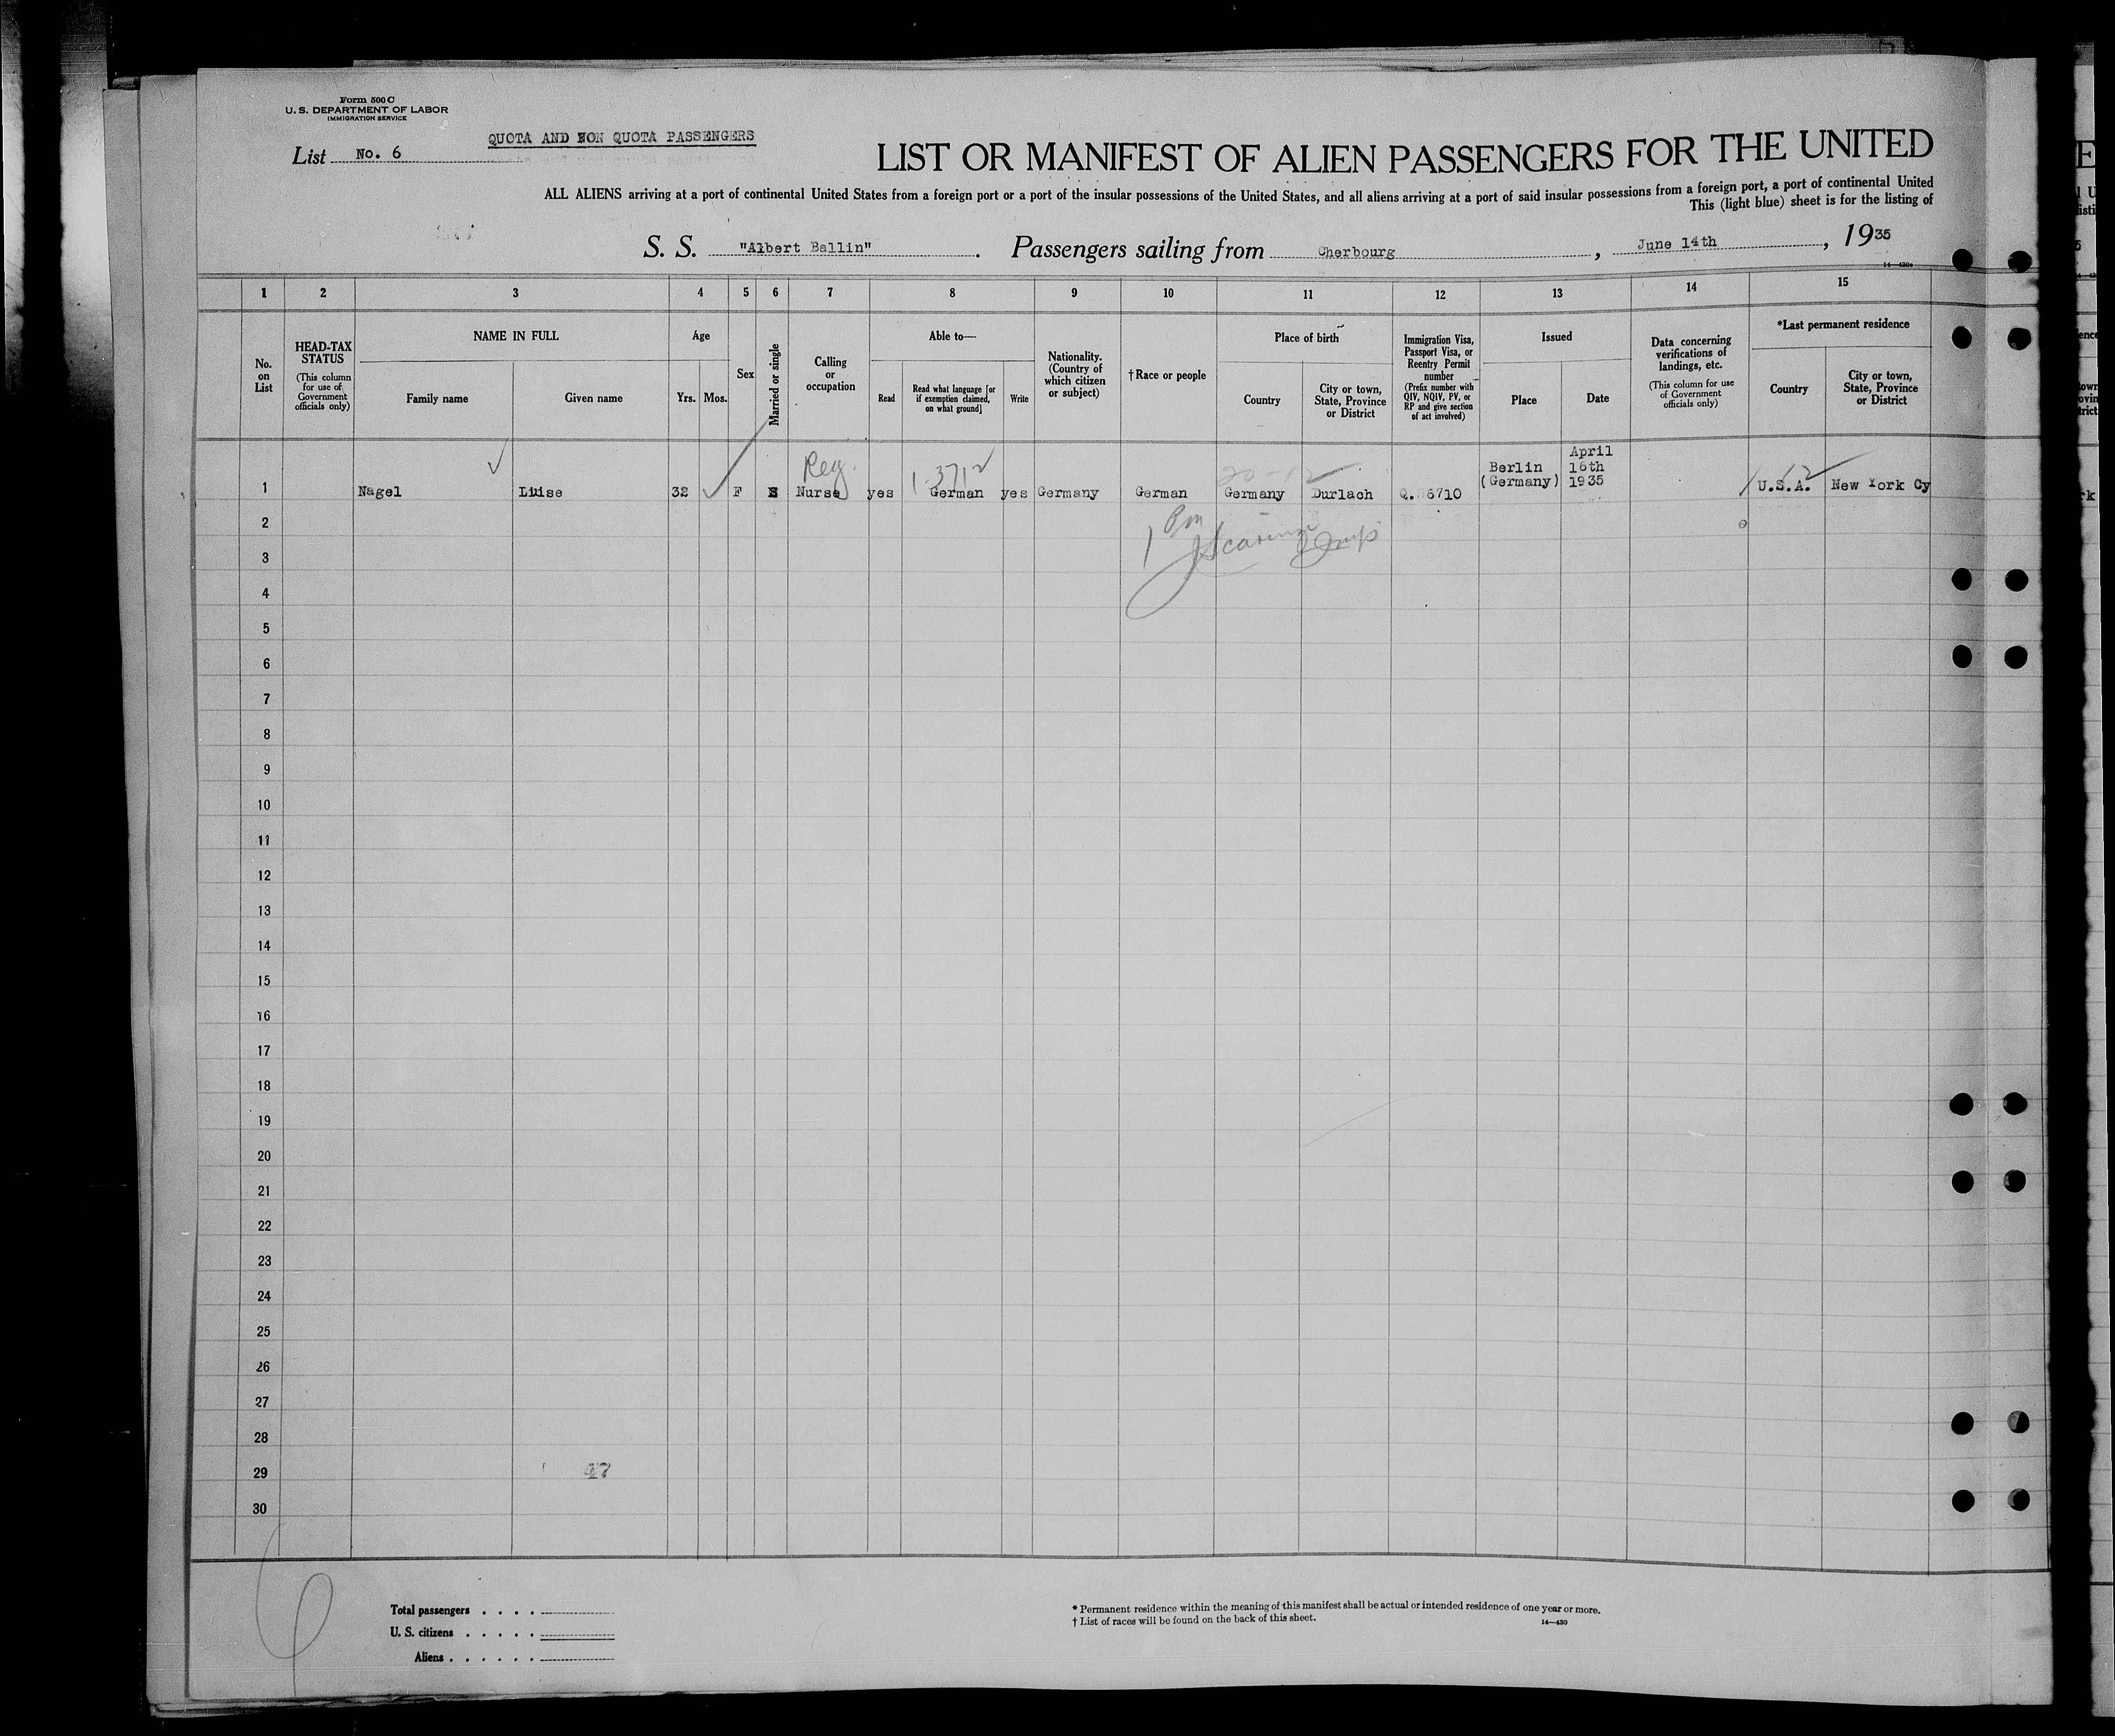 Form 500 C
U. S. DEPARTMENT OF LABOR
IMMIGRATION SERVICE
QUOTA AND NON QUOTA PASSENGERS
List No. 6
LIST OR MANIFEST OF ALIEN PASSENGERS FOR THE UNITED
ALL ALIENS arriving at a port of continental United States from a foreign port or a port of the insular possessions of the United States, and all aliens arriving at a port of said insular possessions from a foreign port, a port of continental United
This (light blue) sheet is for the listing of
S. S. "Albert Ballin" . Passengers sailing from Cherbourg , June 14th , 1935
1 2 3 4 5 6 7 8 9 10 11 12 13 14 15
No. on List
HEAD-TAX STATUS (This column for use of Government officials only)
NAME IN FULL
Family name
Given name
Age
Yrs. Mos.
Sex
Married or single
Calling or occupation
Able to—
Read
Read what language [or if exemption claimed, on what ground]
Write
Nationality. (Country of which citizen or subject)
† Race or people
Place of birth
Country
City or town, State, Province or District
Immigration Visa, Passport Visa, or Reentry Permit number (Prefix number with QIV, NQIV, PV, or RP and give section of act involved)
Issued
Place
Date
Data concerning verifications of landings, etc. (This column for use of Government officials only)
*Last permanent residence
Country
City or town, State, Province or District
Reg.
1 Nagel Luise 32 F S Nurse yes German yes Germany German Germany Durlach Q. 6710 Berlin (Germany) April 16th 1935 U.S.A. New York Cy
2
1 Pm
3
4
5
6
7
8
9
10
11
12
13
14
15
16
17
18
19
20
21
22
23
24
25
26
27
28
29 47
30
Total passengers . . . .
U. S. citizens . . . . .
Aliens . . . . . .
* Permanent residence within the meaning of this manifest shall be actual or intended residence of one year or more.
† List of races will be found on the back of this sheet.
14—430